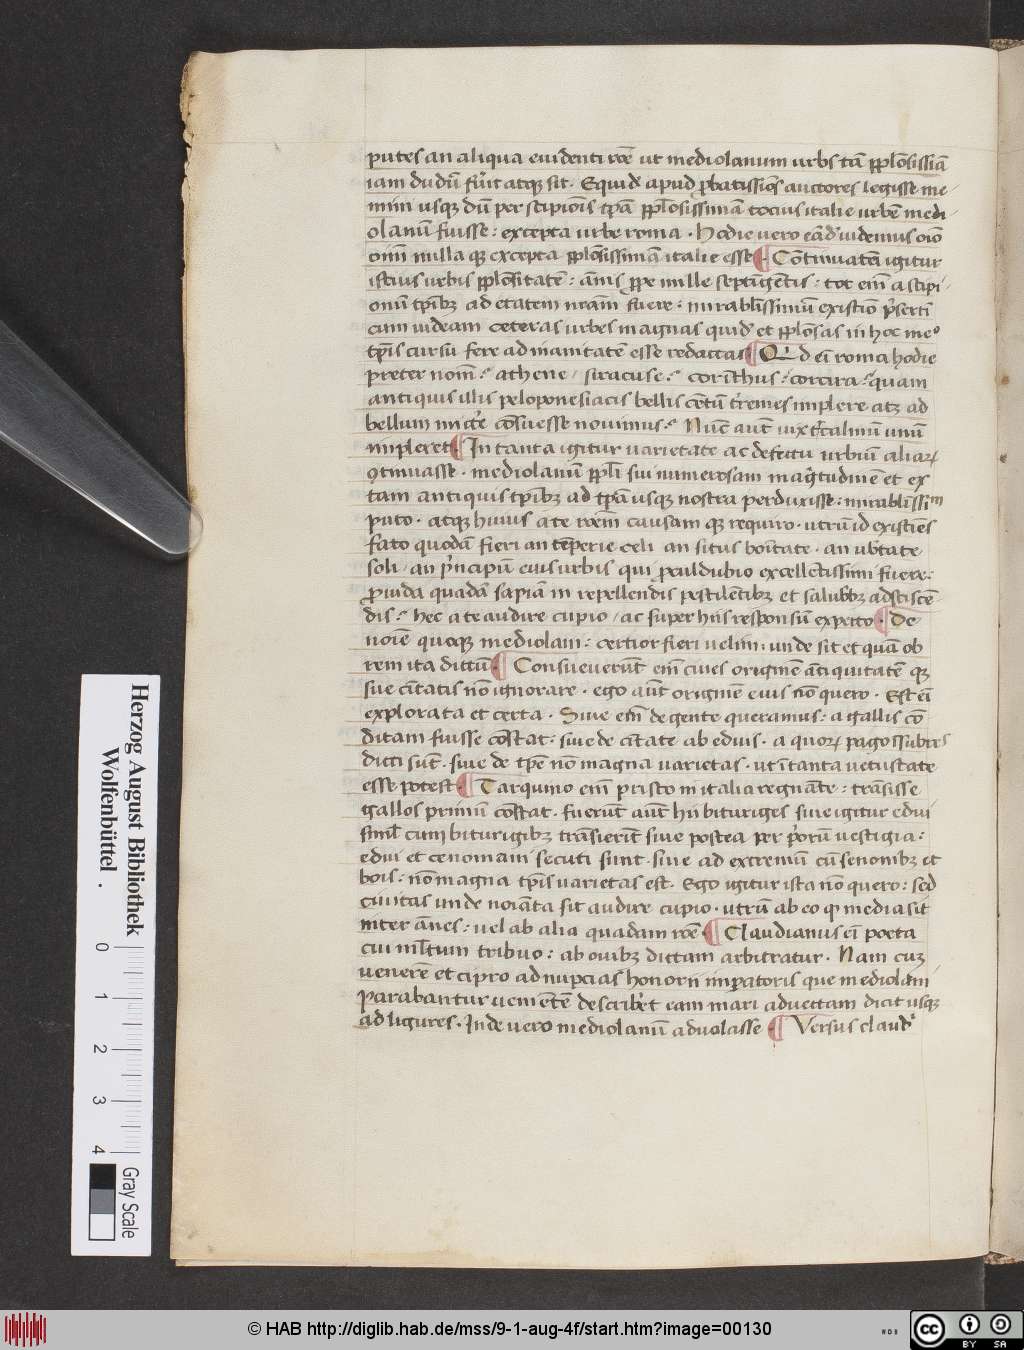 putes an aliqua euidenti rōe ut mediolanum urbs tā pplōsissiā
iam dudū fūit atqꝫ sit. Equidē apud ꝓbatissiōs auctores legisse me-
mini usqꝫ dū per scipiōis tpā pplōsissimā tocius italie urbē medi-
olanū fuisse: excepta urbe roma. Hodie uero eād uidemus oīō
oīm nulla qꝫ excepta pplōsissimā italie esse ¶ Cōtinuatā igitur
istius urbis pplōsitatē: ānis ꝓpe mille septīgētis: tot eīm a scipi-
onū tpībꝫ ad etatem nrām fuere: mirabilissimū existiō p̄serti
cum uideam ceteras urbes magnas quidē et pplōsas in hoc me°
tpīs cursu fere ad inanitatē esse redactas ¶ Qd eī roma hodie
preter nomē: athene / siracuse: corīthus: corcira: quam
antiquis illis peloponesiacis bellis cētū tremes implere atꝫ ad
bellum mictē cōsuesse nouimus: Nūc aūt uix tcalmū unū
impleret ¶ In tanta igitur uarietate ac defectu urbiū aliarꝝ
ꝯtinuasse. mediolanū ppli sui numerosam magtudinē et ex
tam antiquis tpībꝫ ad tpā usqꝫ nostra perduxisse: mirabilissim
puto. atqꝫ huius a te rōem causam qꝫ requiro. utrū id existies
fato quodā fieri an tēperie celi an situs boītate. an ubtate
soli / an p̄ncipiū eius urbis qui ꝓculdubio excellētissimi fuere:
ꝓuida quadā sapiā in repellendis pestilētibꝫ et salubꝫ adsciscē
dis: hec a te audire cupio / ac super hiis responsū expecto ¶ De
noīe quoqꝫ mediolani: certior fieri uelim: unde sit et quā ob
rem ita dictū ¶ Consueuerūt eīm ciues originē ātiquitatē qꝫ
sue ciītatis nō ignorare. ego aūt originē eius nō quero. Est eī
explorata et certa. Siue eīm de gente queramus: a gallis cō
ditam fuisse cōstat: siue de ciītate ab eduis. a quorꝝ pago ssubres
dicti sūt. siue de tpē nō magna uarietas. ut ī tanta uetustate
esse potest ¶ Tarquinio eīm pristo in italia regnāte: trāsisse
gallos primū cōstat. fuerūt aūt hii bituriges siue igitur edui
simīl cum biturigibꝫ trāsierīt siue postea per p̄orū uestigia:
edui et cenomani secuti sunt. siue ad extremū cū senonibꝫ et
bois: nō magna tpīs uarietas est. Ego igitur ista nō quero: sed
ciuitas unde noīata sit audire cupio. utrū ab eo qꝫ media sit
inter ānes: uel ab alia quadam rōe ¶ Claudianus eī poeta
cui mītum tribuo: ab ouibꝫ dictam arbitratur. Nam cuꝫ
venerē et cipro ad nupcias honorii imperatoris que mediolani
parabantur uenietē describeret eam mari aduectam dicit usqꝫ
ad ligures. Inde uero mediolanū aduolasse ¶ Versus claudi
Herzog August Bibliothek
Wolfenbüttel .
0 1 2 3 4
Gray Scale
© HAB http://diglib.hab.de/mss/9-1-aug-4f/start.htm?image=00130
WDB
cc BY SA